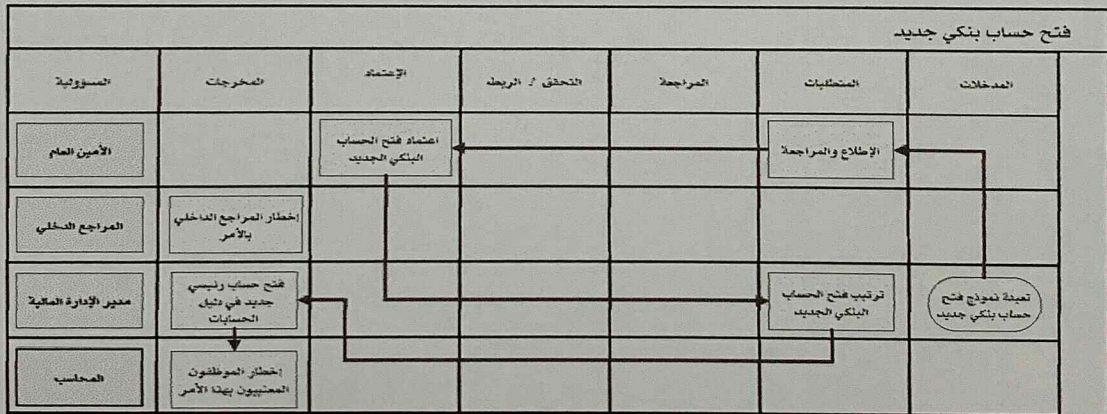 فتح حساب بنكي جديد
المدخلات
المتطلبات
المراجعة
التحقق / الربط
الإعتماد
المخرجات
المسؤولية
الإطلاع والمراجعة
اعتماد فتح الحساب
البنكي الجديد
الأمين العام
إخطار المراجع الداخلي
بالأمر
المراجع الدخلي
تعبئة نموذج فتح
حساب بنكي جديد
ترتيب فتح الحساب
البنكي الجديد
فتح حساب رئيسي
جديد في دليل
الحسابات
مدير الإدارة المالية
إخطار الموظفون
المعنييون بهذا الأمر
المحاسب